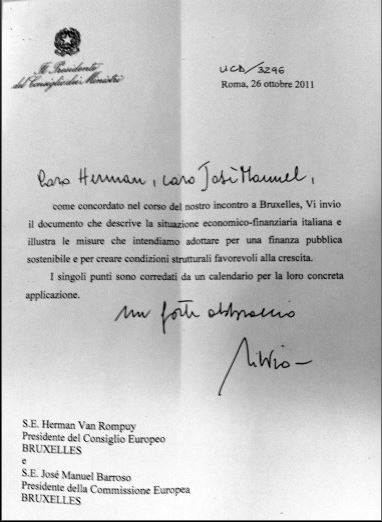 Il Presidente
del Consiglio dei Ministri
UCD/3296
Roma, 26 ottobre 2011
Caro Herman, caro José Manuel,
come concordato nel corso del nostro incontro a Bruxelles, Vi invio
il documento che descrive la situazione economico-finanziaria italiana e
illustra le misure che intendiamo adottare per una finanza pubblica
sostenibile e per creare condizioni strutturali favorevoli alla crescita.
I singoli punti sono corredati da un calendario per la loro concreta
applicazione.
un forte abbraccio
Silvio
S.E. Herman Van Rompuy
Presidente del Consiglio Europeo
BRUXELLES
e
S.E. José Manuel Barroso
Presidente della Commissione Europea
BRUXELLES